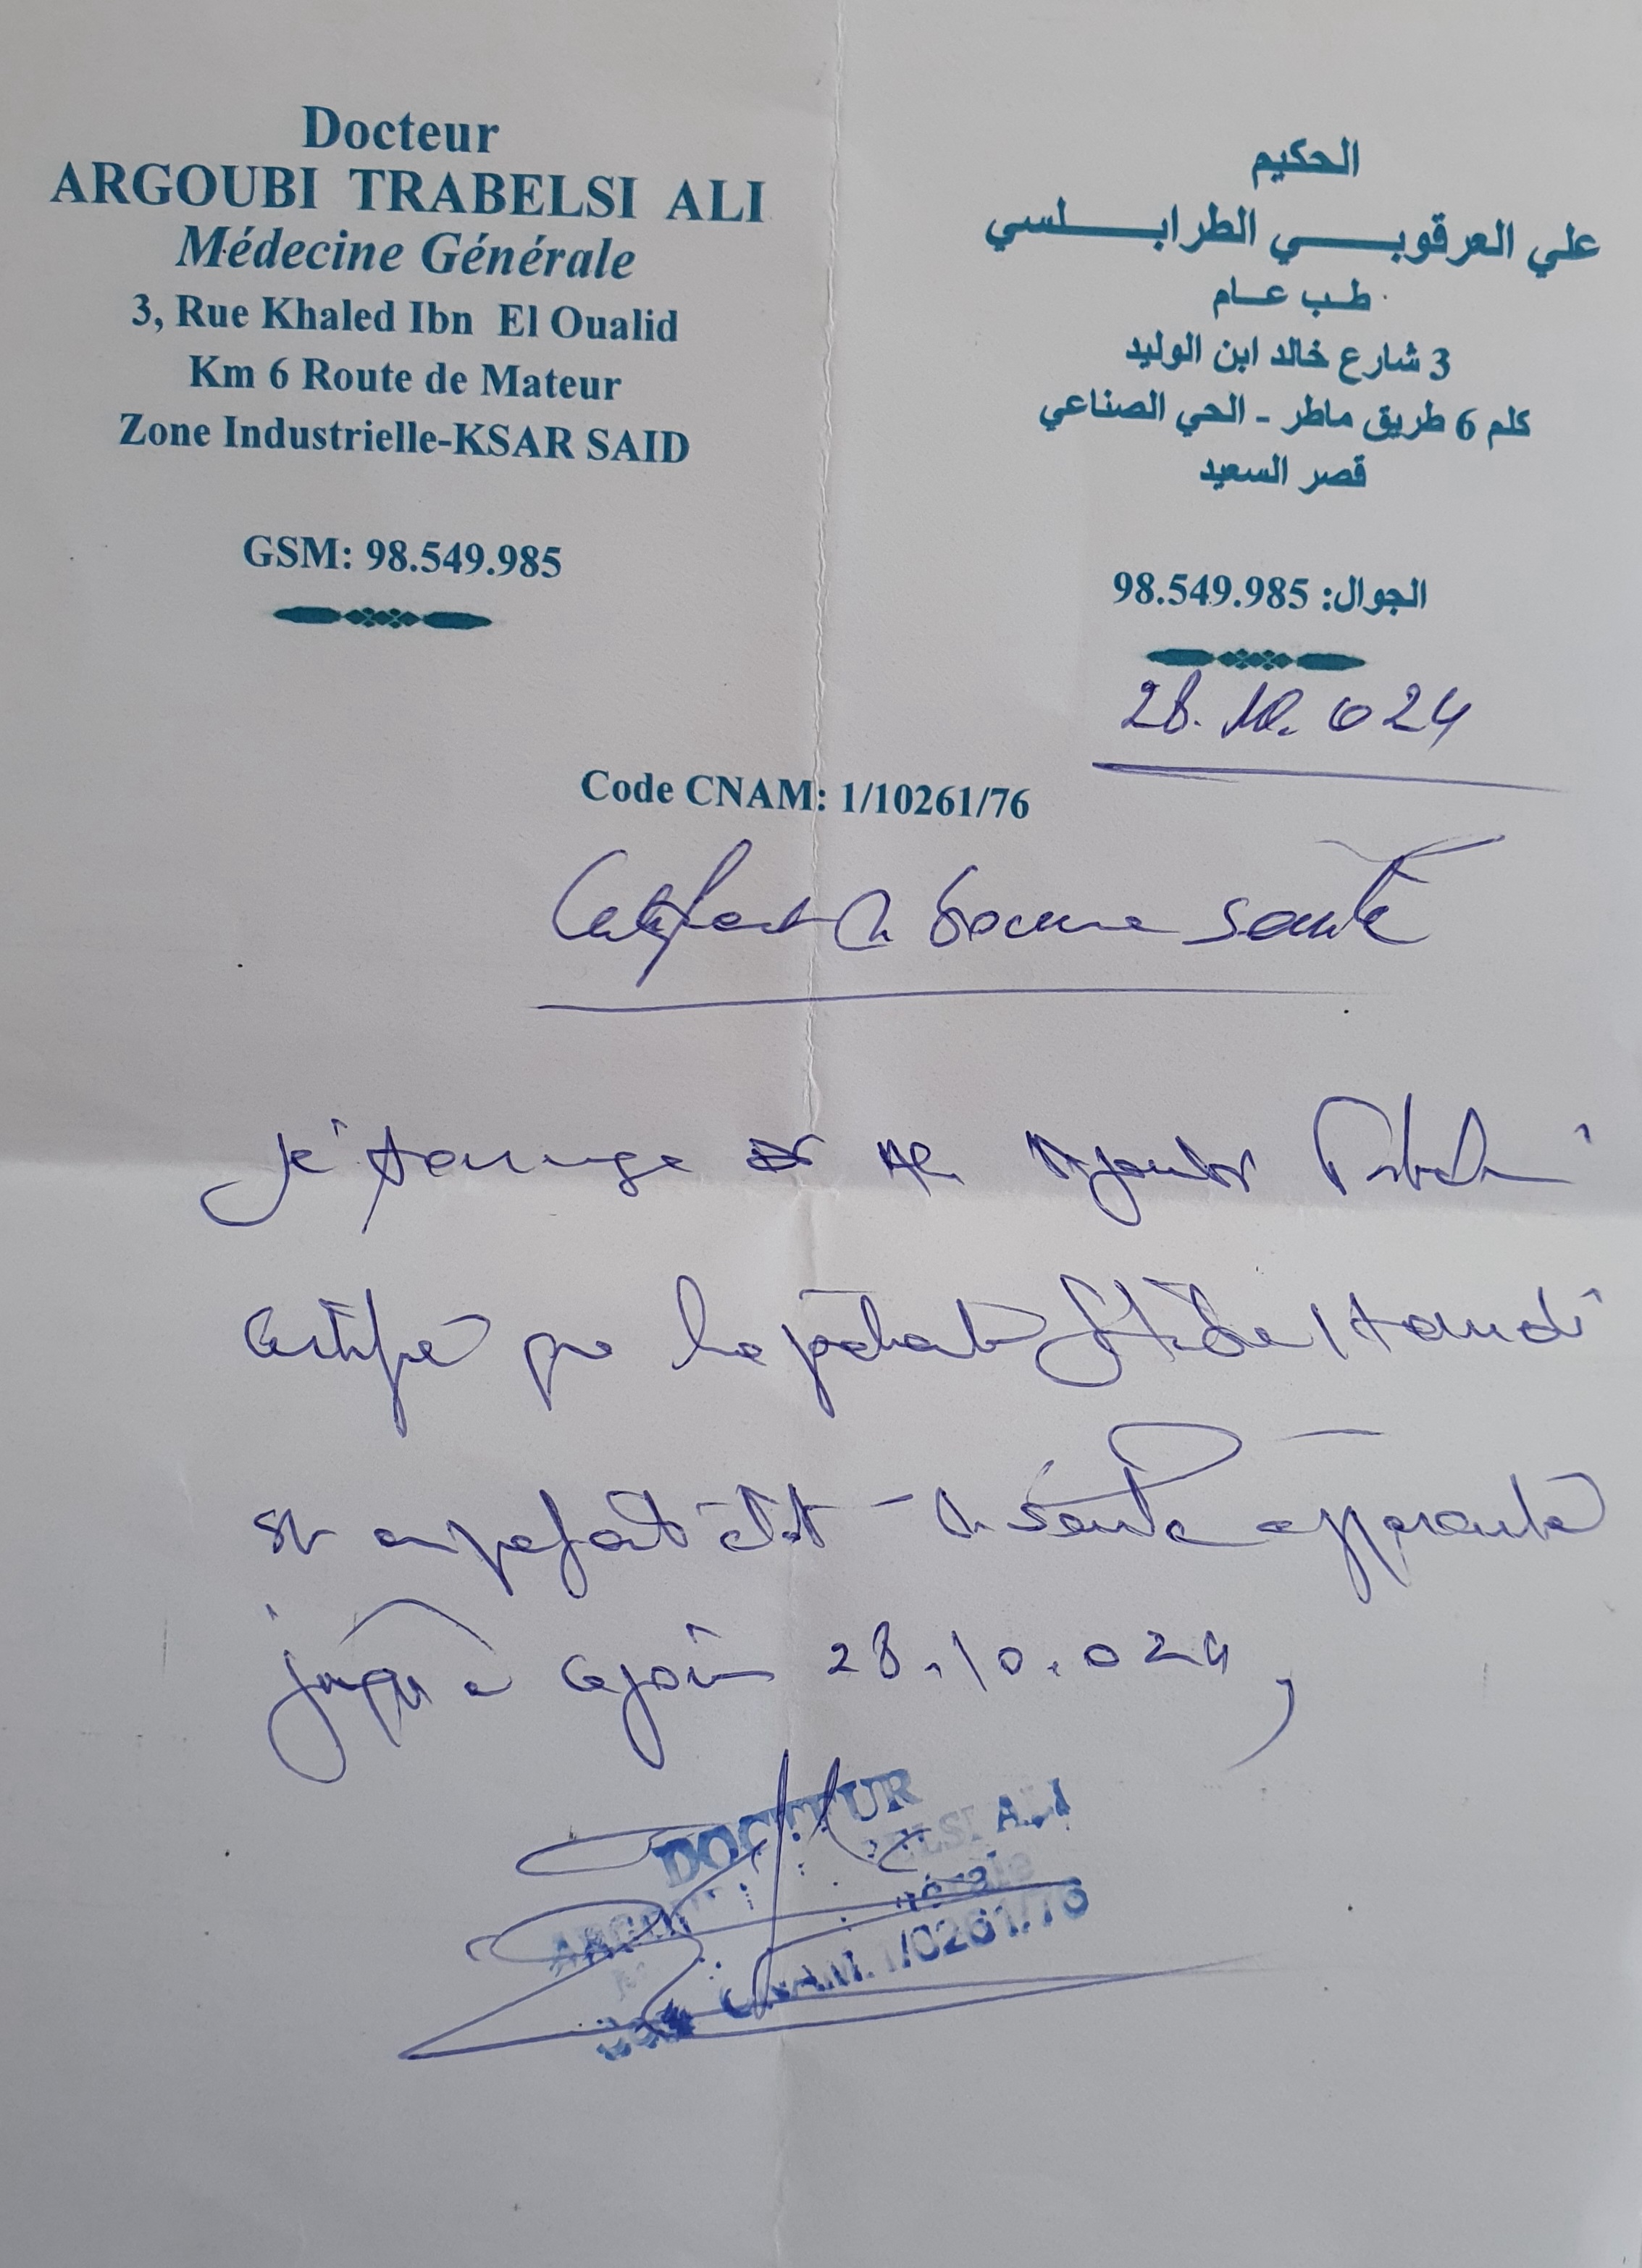 Docteur
ARGOUBI TRABELSI ALI
Médecine Générale
3, Rue Khaled Ibn El Oualid
Km 6 Route de Mateur
Zone Industrielle-KSAR SAID
GSM: 98.549.985
الحكيم
علي العرقوبي الطرابلسي
طب عام
3 شارع خالد ابن الوليد
كلم 6 طريق ماطر - الحي الصناعي
قصر السعيد
الجوال: 98.549.985
28.10.024
Code CNAM: 1/10261/76
Certificat de bonne santé
Je soussigné Dr Ali Argoubi Trabelsi
certifie que la patiente Hamdi
est en parfait état de santé apparente
jusqu'à ce jour 28.10.024,
DOCTEUR
ARGOUBI TRABELSI ALI
Code CNAM. 1/10261/76